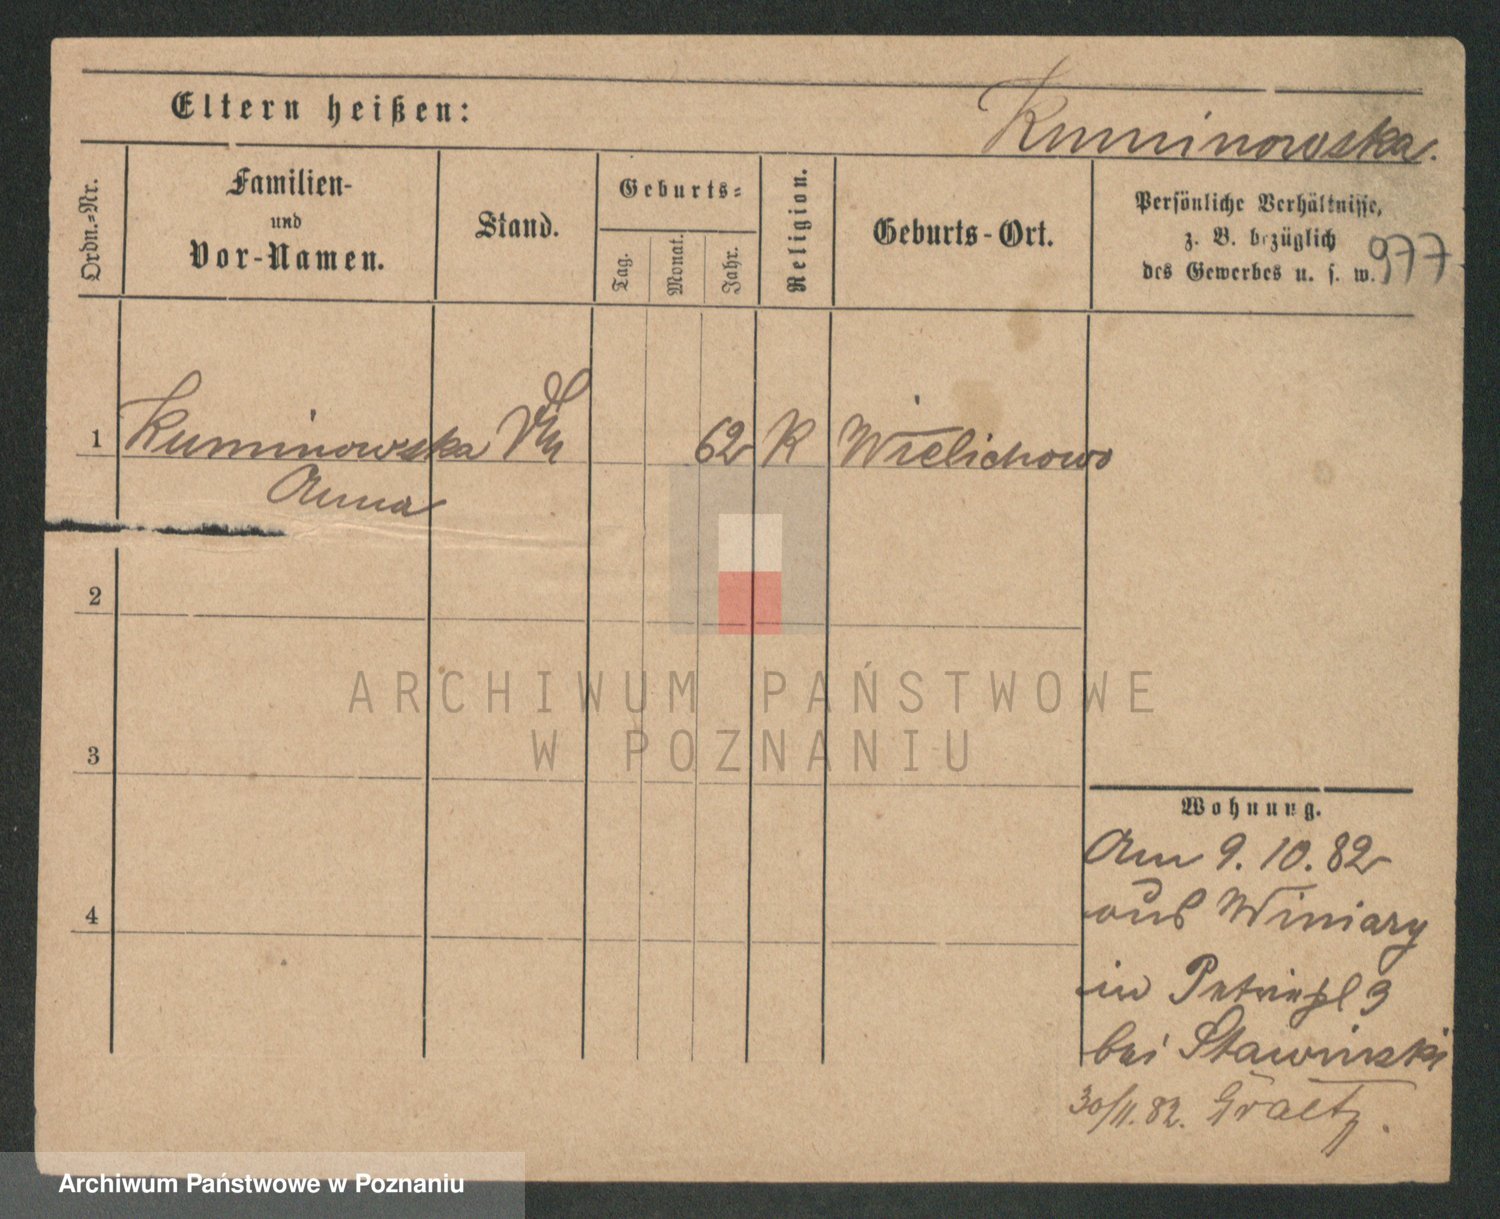 Eltern heißen:
Kuminowska.
Ordn.-Nr.
Familien-
und
Vor-Namen.
Stand.
Geburts-
Tag.
Monat.
Jahr.
Religion.
Geburts-Ort.
Persönliche Verhältnisse,
z. B. bezüglich
des Gewerbes u. s. w.
977
1 Kuminowska 62 R Wielichowo
Anna
2
3
4
Wohnung.
Am 9. 10. 82
aus Winiary
in Petripl 3
bei Stawinski
30/11. 82. Graetz.
ARCHIWUM PAŃSTWOWE
W POZNANIU
Archiwum Państwowe w Poznaniu